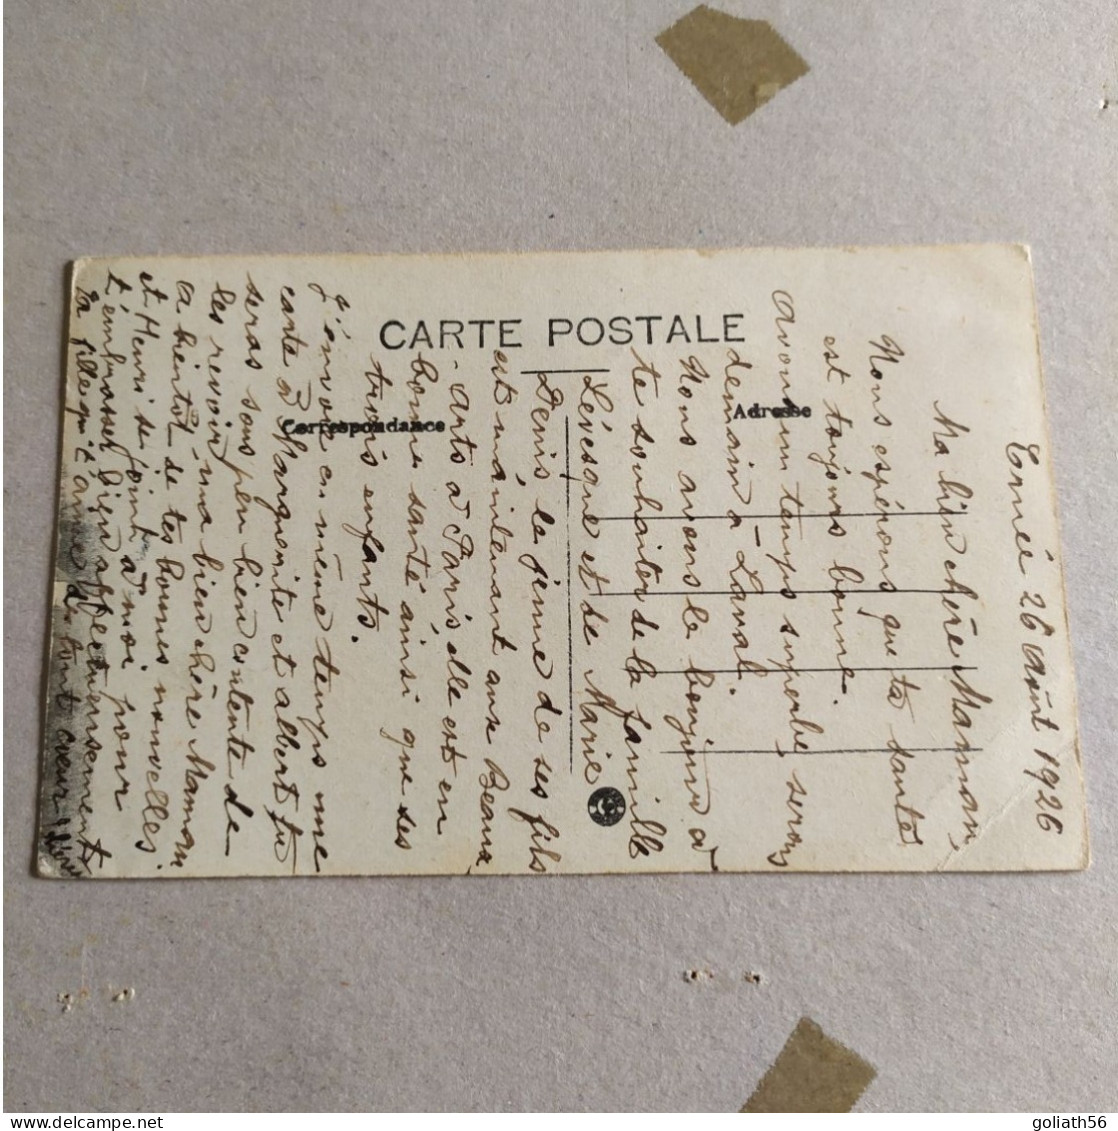 Ernée 26 août 1926
Ma bien chère Maman,
Nous espérons que ta santé
est toujours bonne.
avons un temps superbe, serons
demain à Laval.
Nous avons le bonjour à
te souhaiter de la famille
Lévesque et de Marie
Denis, le jeune de ses fils
est maintenant aux Beaux
- Arts à Paris, elle est en
bonne santé ainsi que ses
trois enfants.
J'envoie en même temps une
carte à Marguerite et albert tu
seras sous peu bien contente de
les revoir, ma bien chère Maman
à bientôt de tes bonnes nouvelles
et Henri se joint à moi pour
t'embrasser bien affectueusement
ta fille qui t'aime de tout coeur
CARTE POSTALE
Correspondance
Adresse
goliath56